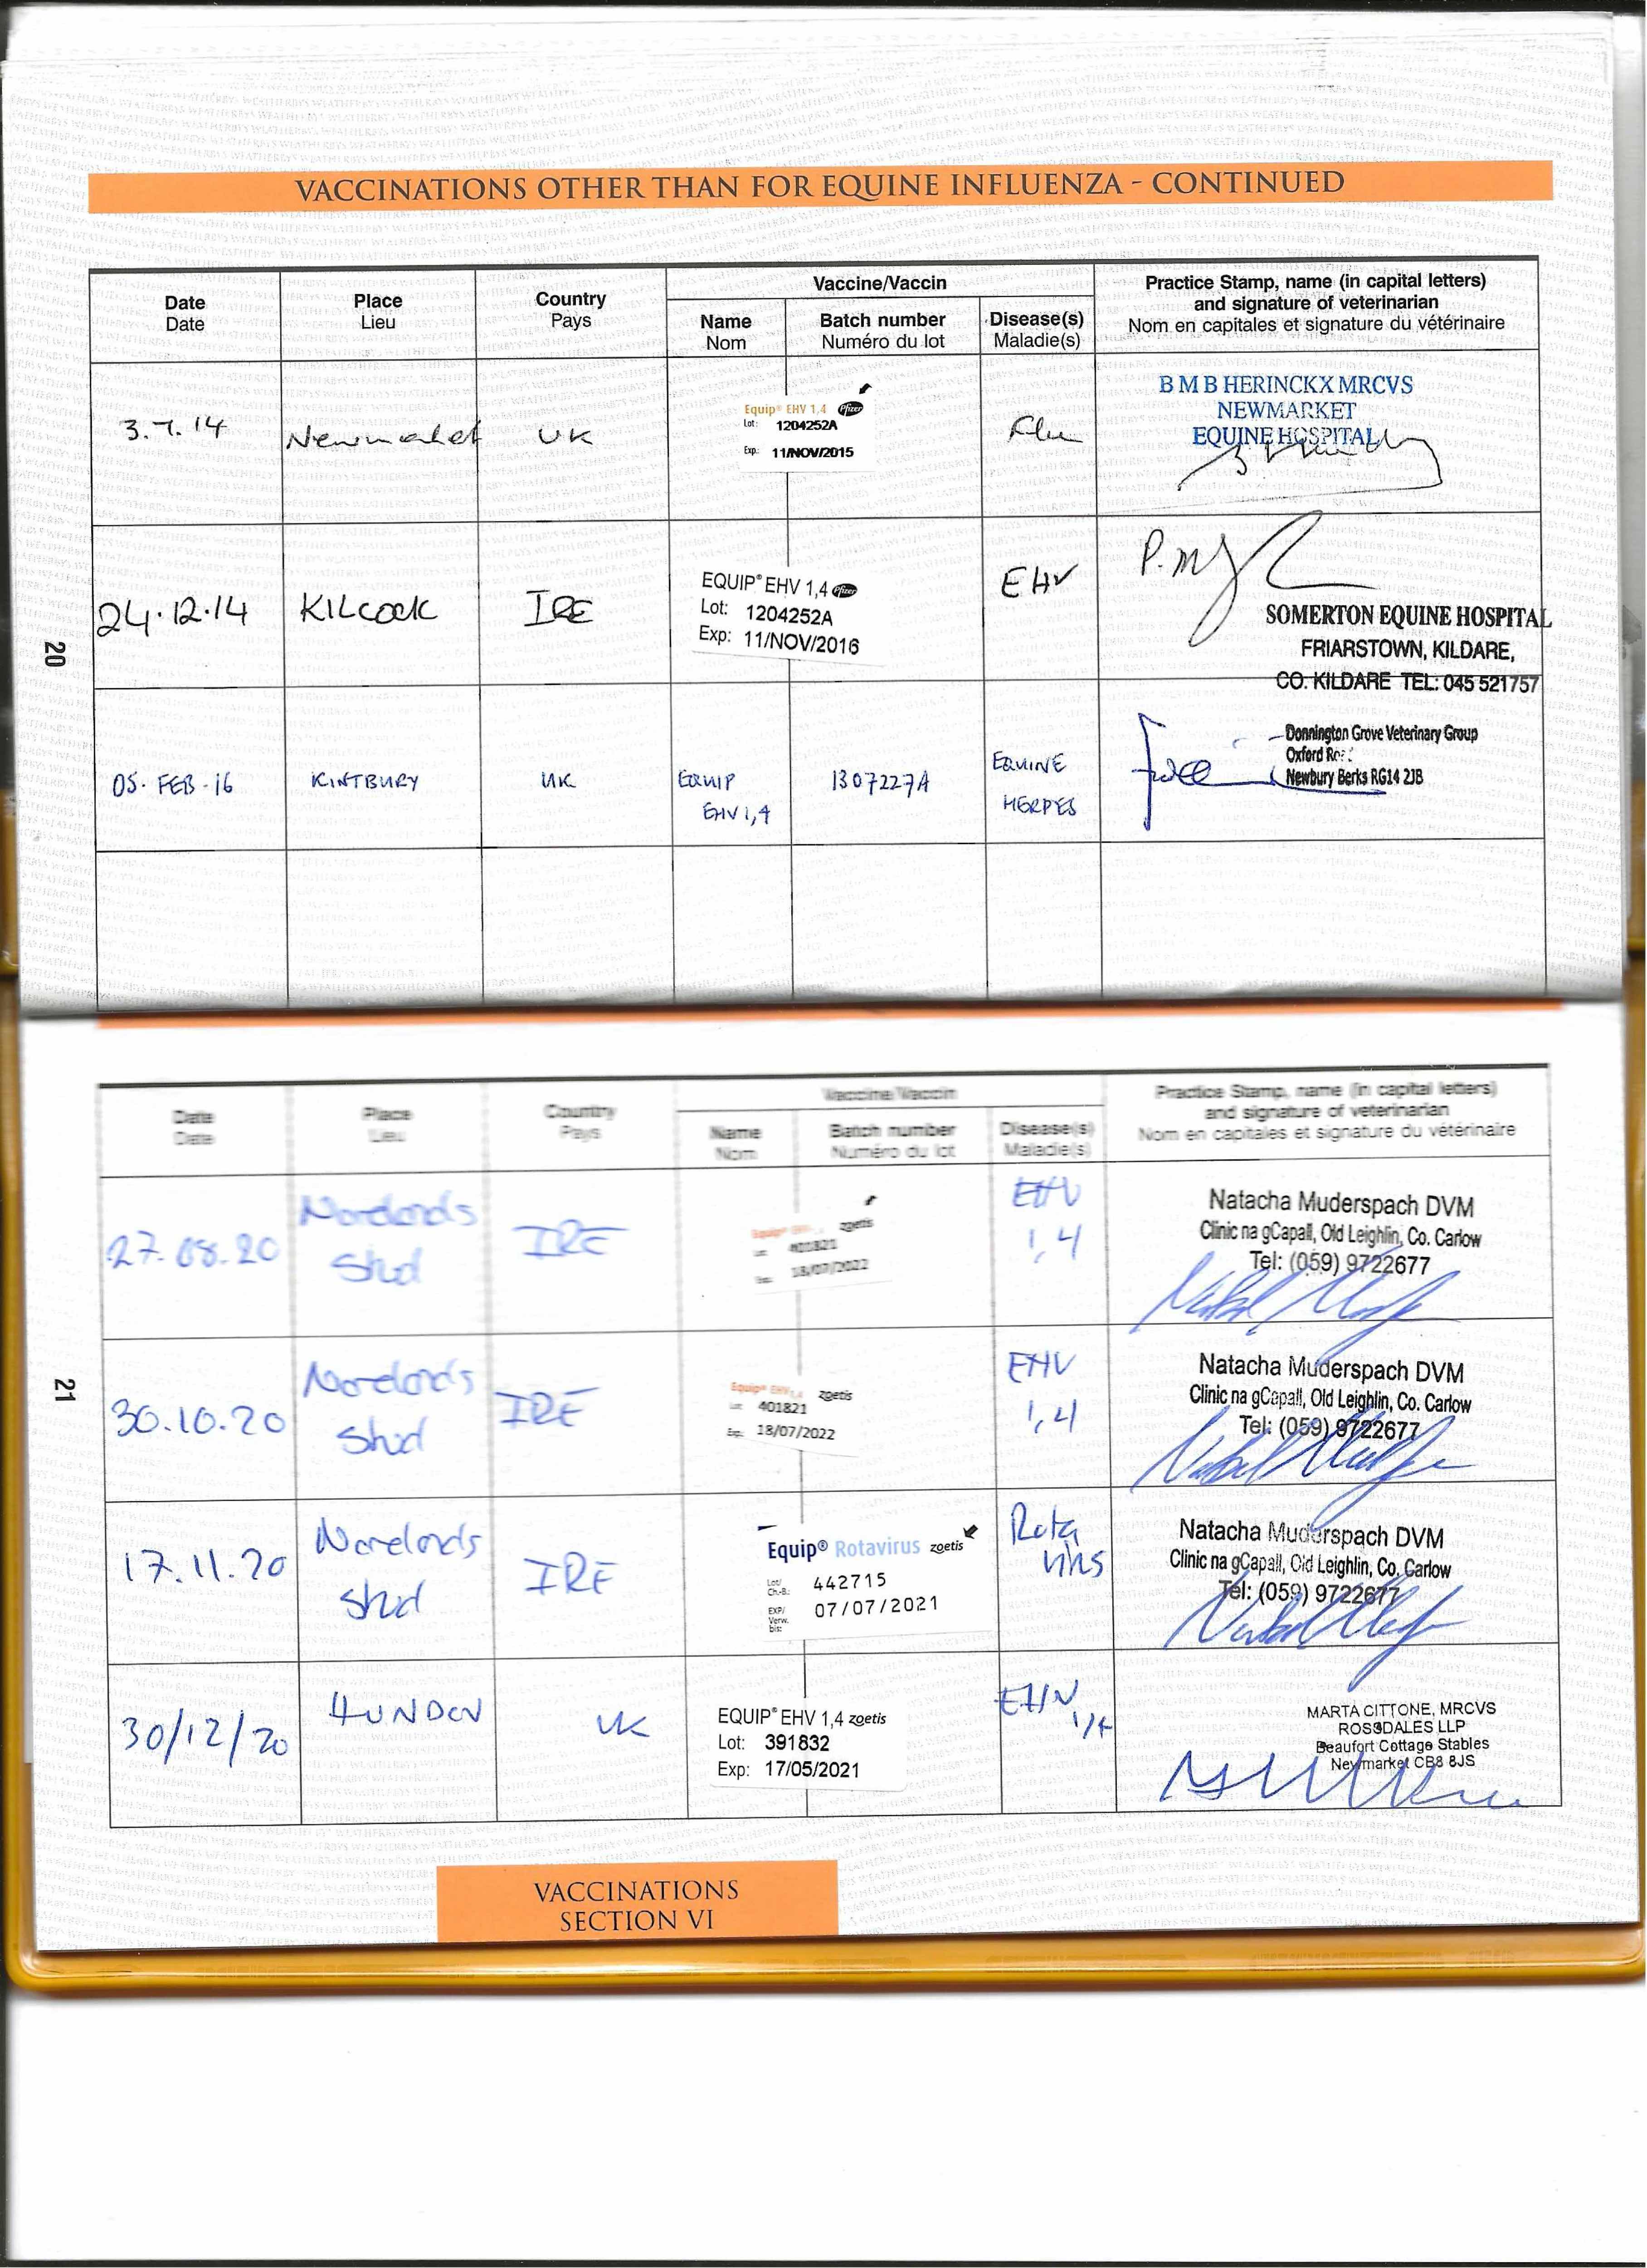 VACCINATIONS OTHER THAN FOR EQUINE INFLUENZA - CONTINUED
Date
Date
Place
Lieu
Country
Pays
Vaccine/Vaccin
Name
Nom
Batch number
Numéro du lot
Disease(s)
Maladie(s)
Practice Stamp, name (in capital letters)
and signature of veterinarian
Nom en capitales et signature du vétérinaire
3.7.14
Newmarket
UK
Equip® EHV 1,4 Pfizer
Lot: 1204252A
Exp: 11/NOV/2015
Flu
B M B HERINCKX MRCVS
NEWMARKET
EQUINE HOSPITAL
24.12.14
KILCOCK
IRE
EQUIP® EHV 1,4 Pfizer
Lot: 1204252A
Exp: 11/NOV/2016
EHV
SOMERTON EQUINE HOSPITAL
FRIARSTOWN, KILDARE,
CO. KILDARE TEL: 045 521757
05. FEB. 16
KINTBURY
UK
EQUIP
EHV 1,4
1307227A
EQUINE
HERPES
Donnington Grove Veterinary Group
Oxford
Newbury Berks RG14 2JB
20
Date
Date
Place
Lieu
Country
Pays
Vaccine/Vaccin
Name
Nom
Batch number
Numéro du lot
Disease(s)
Maladie(s)
Practice Stamp, name (in capital letters)
and signature of veterinarian
Nom en capitales et signature du vétérinaire
27.08.20
Norelands
Stud
IRE
Equip® EHV zoetis
401821
18/07/2022
EHV
1,4
Natacha Muderspach DVM
Clinic na gCapall, Old Leighlin, Co. Carlow
Tel: (059) 9722677
30.10.20
Norelands
Stud
IRE
Equip® EHV 1,4 zoetis
Lot: 401821
Exp: 18/07/2022
EHV
1,4
Natacha Muderspach DVM
Clinic na gCapall, Old Leighlin, Co. Carlow
Tel: (059) 9722677
17.11.20
Norelands
Stud
IRE
Equip® Rotavirus zoetis
Lot/
Ch.-B.: 442715
EXP/
Verw.
bis: 07/07/2021
Rota
virus
Natacha Muderspach DVM
Clinic na gCapall, Old Leighlin, Co. Carlow
Tel: (059) 9722677
30/12/20
UK
EQUIP® EHV 1,4 zoetis
Lot: 391832
Exp: 17/05/2021
EHV
1/4
MARTA CITTONE, MRCVS
ROSSDALES LLP
Beaufort Cottage Stables
Newmarket CB8 8JS
21
VACCINATIONS
SECTION VI